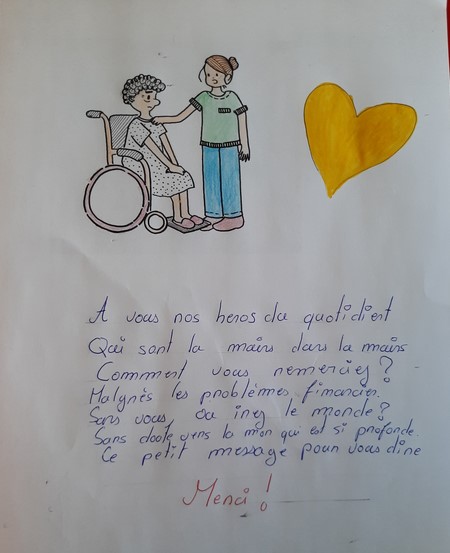 A vous nos heros du quotidient
Qui sont la mains dans la mains
Comment vous remerciez ?
Malgrès les problèmes financier.
Sans vous, ou irez le monde ?
Sans doute vers la mort qui est si profonde
Ce petit message pour vous dire
Merci !